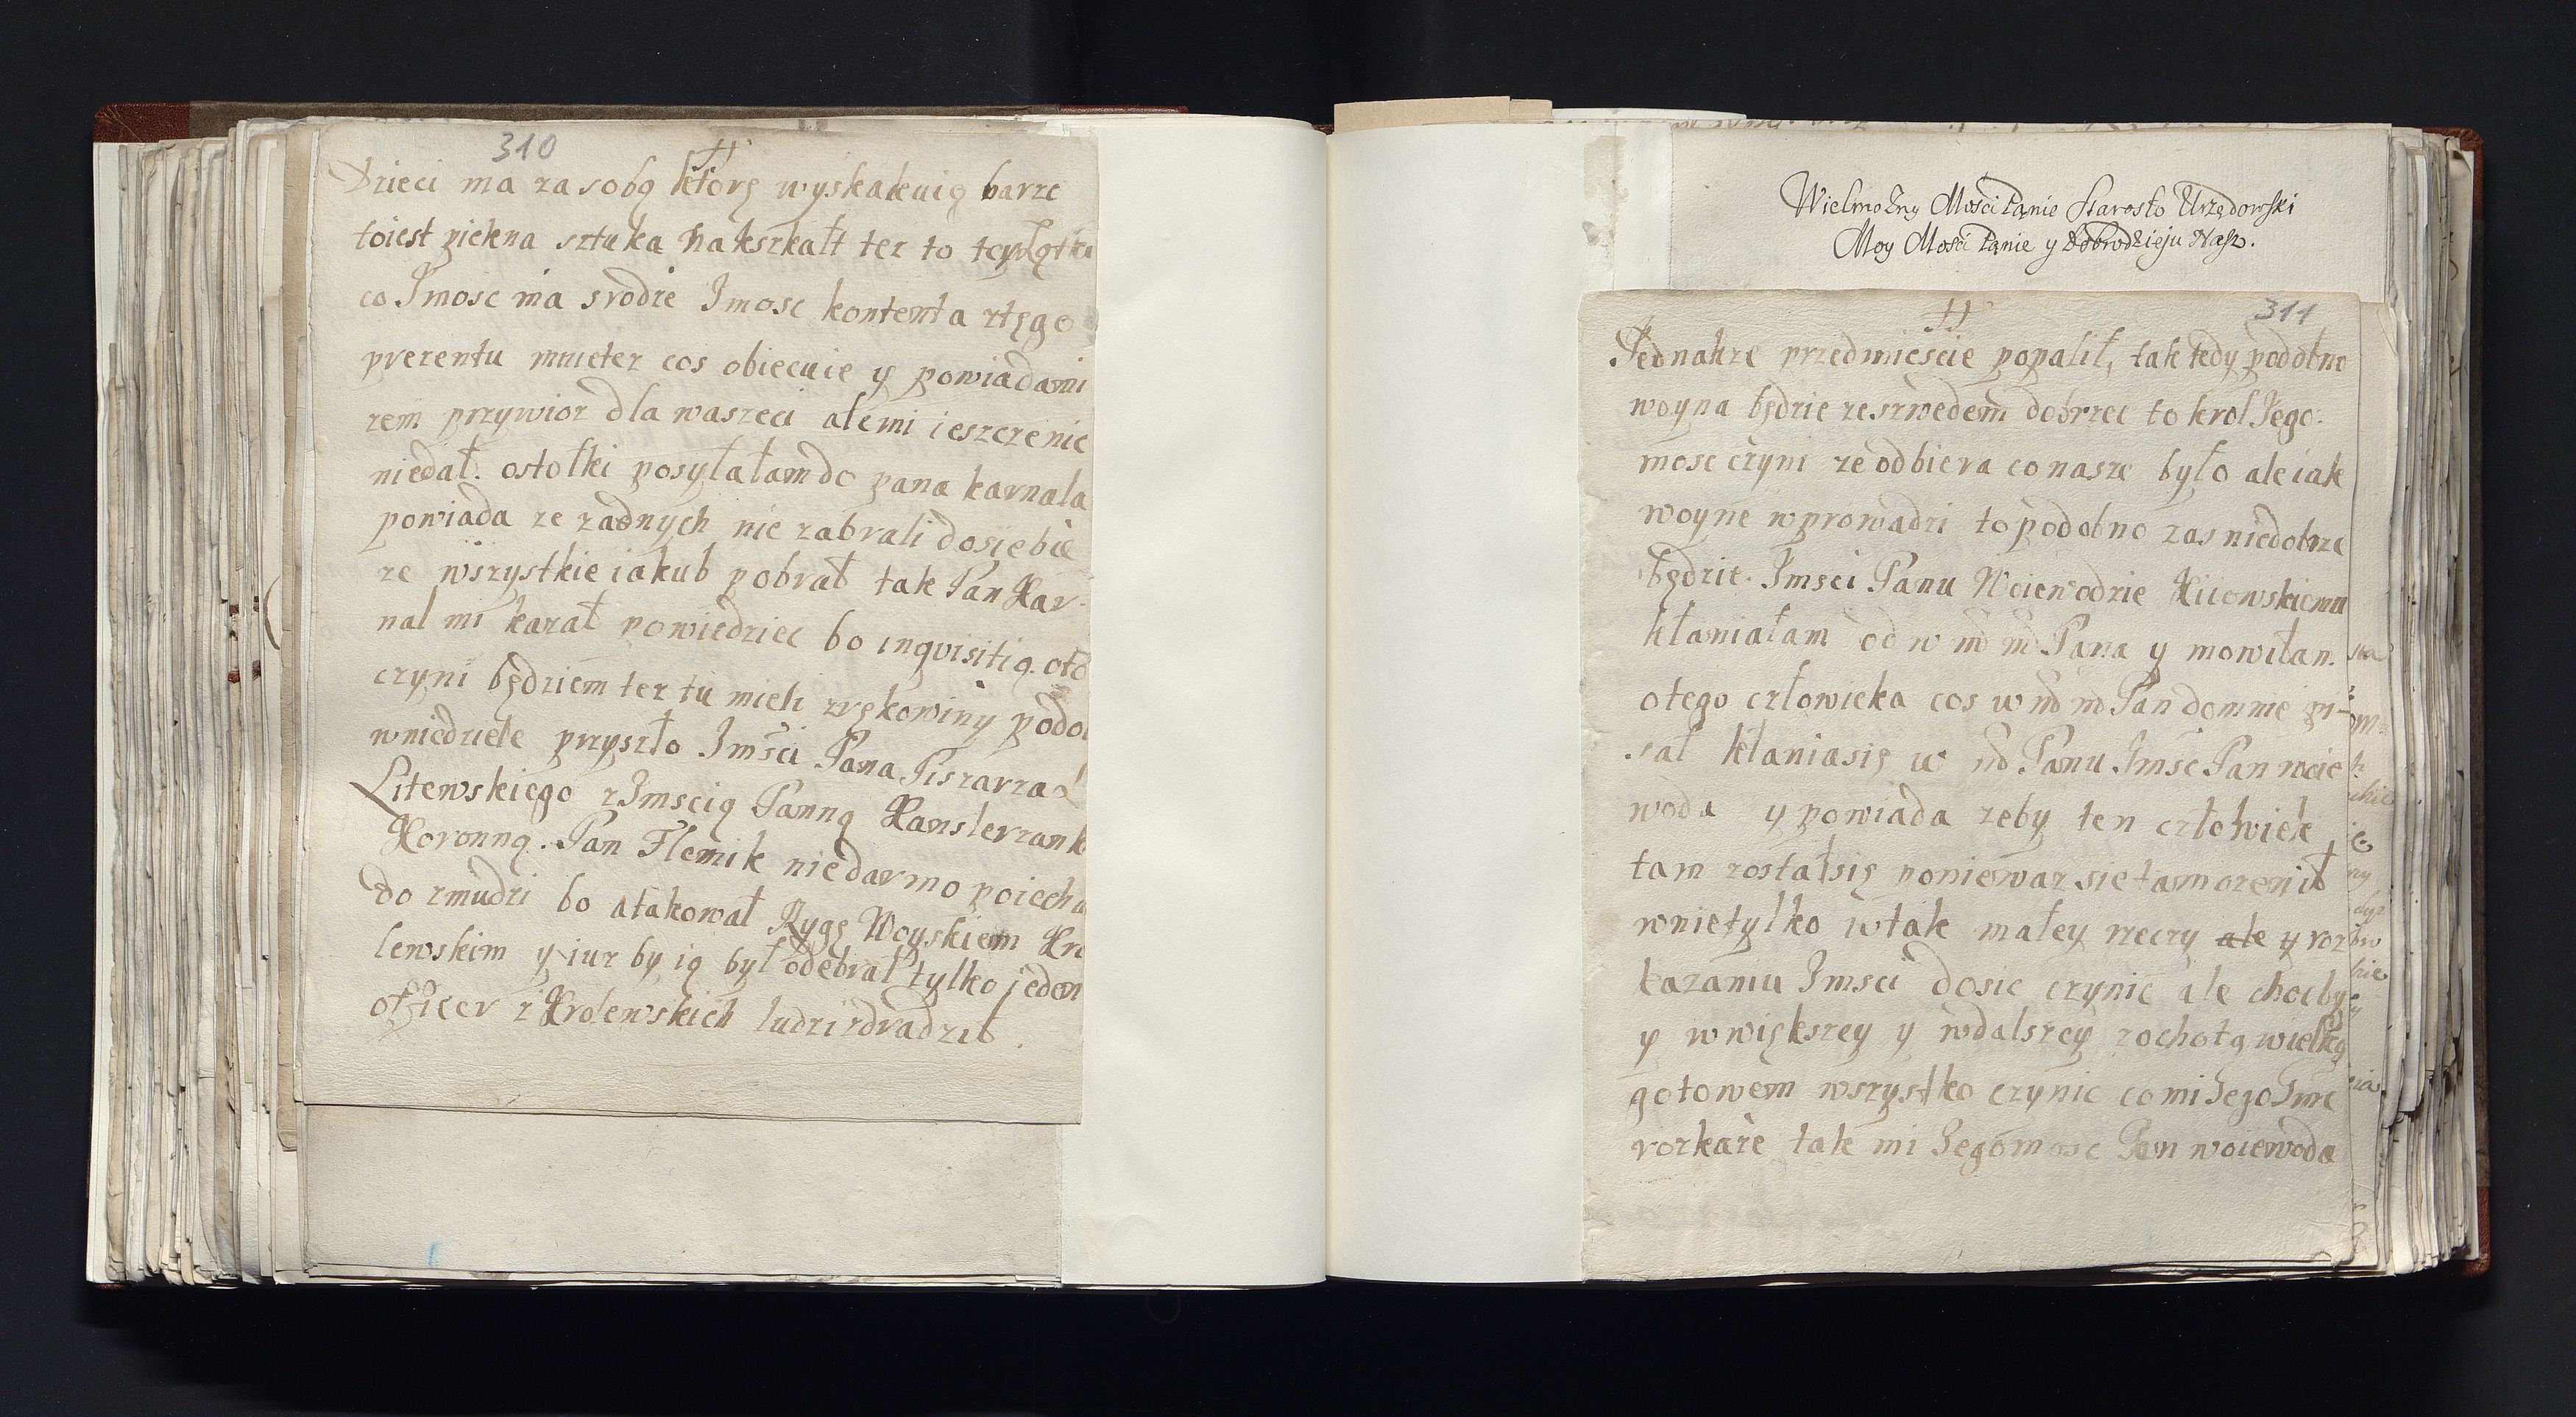 310
Dzieci ma za sobą ktorę wyskakuią barze
toiest piekna sztuka nakształt tez to
co Jmosc ma srodze Jmosc kontenta ztego
prezentu mnietez cos obiecuie y powiadami
zem przywioz dla waszeci alemi ieszczenic
niedał. ostołki posyłałam do pana karnala
powiada ze zadnych nie zabrali dosiebie
ze wszystkie iakub pobrał tak Pan Kar-
nal mi kazał powiedziec bo inquisitią oto
czyni będziem tez tu mieli zrękowiny podo
wniedziele przyszło Jmsci Pana Piszarza
Litewskiego z Jmscią Panną Kanslerzank
Koronną. Pan Flemik niedarmo poiecha
do zmudzi bo atakował Rygę Woyskiem Kro
lewskim y iuz by ią był odebrał tylko jeden
oficer z Krolewskich ludzi zdradził.
Wielmożny Mości Panie Starosto Urzędowski
Moy Mości Panie y Dobrodzieju Nasz.
311
Jednakze przedmiescie popalił, tak tedy podobno
woyna będzie zeszwedem dobrzec to krol Jego-
mosc czyni ze odbiera co nasze było ale iak
woyne wprowadzi to podobno zas niedobrze
będzie. Jmsci Panu Woiewodzie Kiiowskiemu
kłaniałam od w m m Pana y mowiłam
otego człowieka cos w m m Pan domnie pi-
sał kłaniasię w m Panu Jmsc Pan woie
woda y powiada zeby ten człowiek
tam zostałsię poniewaz sie tam ozenił
wnietylko wtak małey rzeczy ale y roz
kazaniu Jmsci dosic czynic ale chocby
y wwiększey y wdalszey zochotą wielką
gotowem wszystko czynic comi Jego Jmc
rozkaże tak mi Jegomosc Pan woiewoda